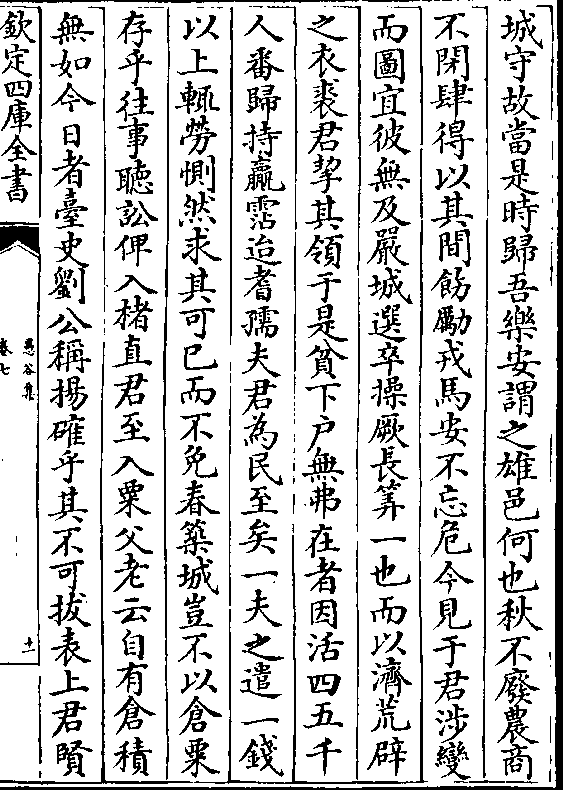 城守故當是時歸吾樂安謂之雄邑何也秋不廢農商
不閉肆得以其間飭勵戎馬安不忘危今見于君涉變
而圖宜彼無及嚴城選卒操厥長筭一也而以濟荒辟
之衣裘君挈其領于是貧下户無弗在者因活四五千
人番歸持贏霑迨耆孺夫君為民至矣一夫之遣一錢
以上輒勞惻然求其可已而不免春築城豈不以倉粟
存乎往事聽訟俾入楮直君至入粟父老云自有倉積
無如今日者臺史劉公稱揚確乎其不可拔表上君賢
欽定四庫全書
愚谷集
卷七
十一